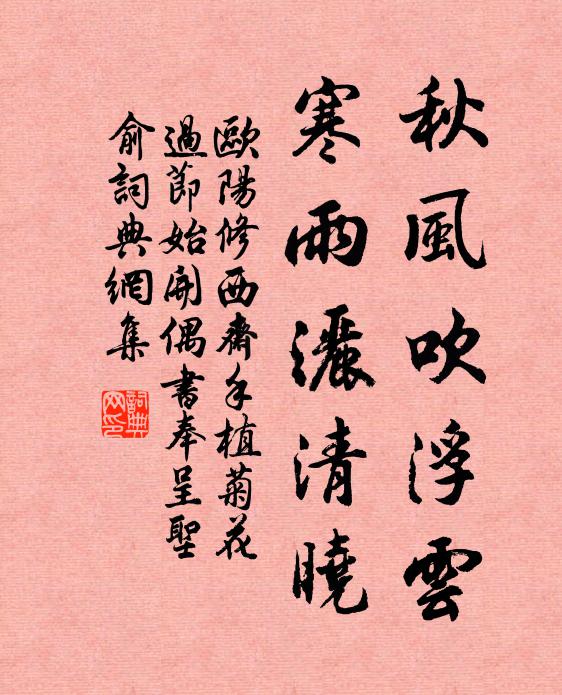 秋風吹浮雲
寒雨灑清曉
歐陽修西齋手植菊花
過節始開偶書奉呈聖
俞詞典網集
詞典
网印